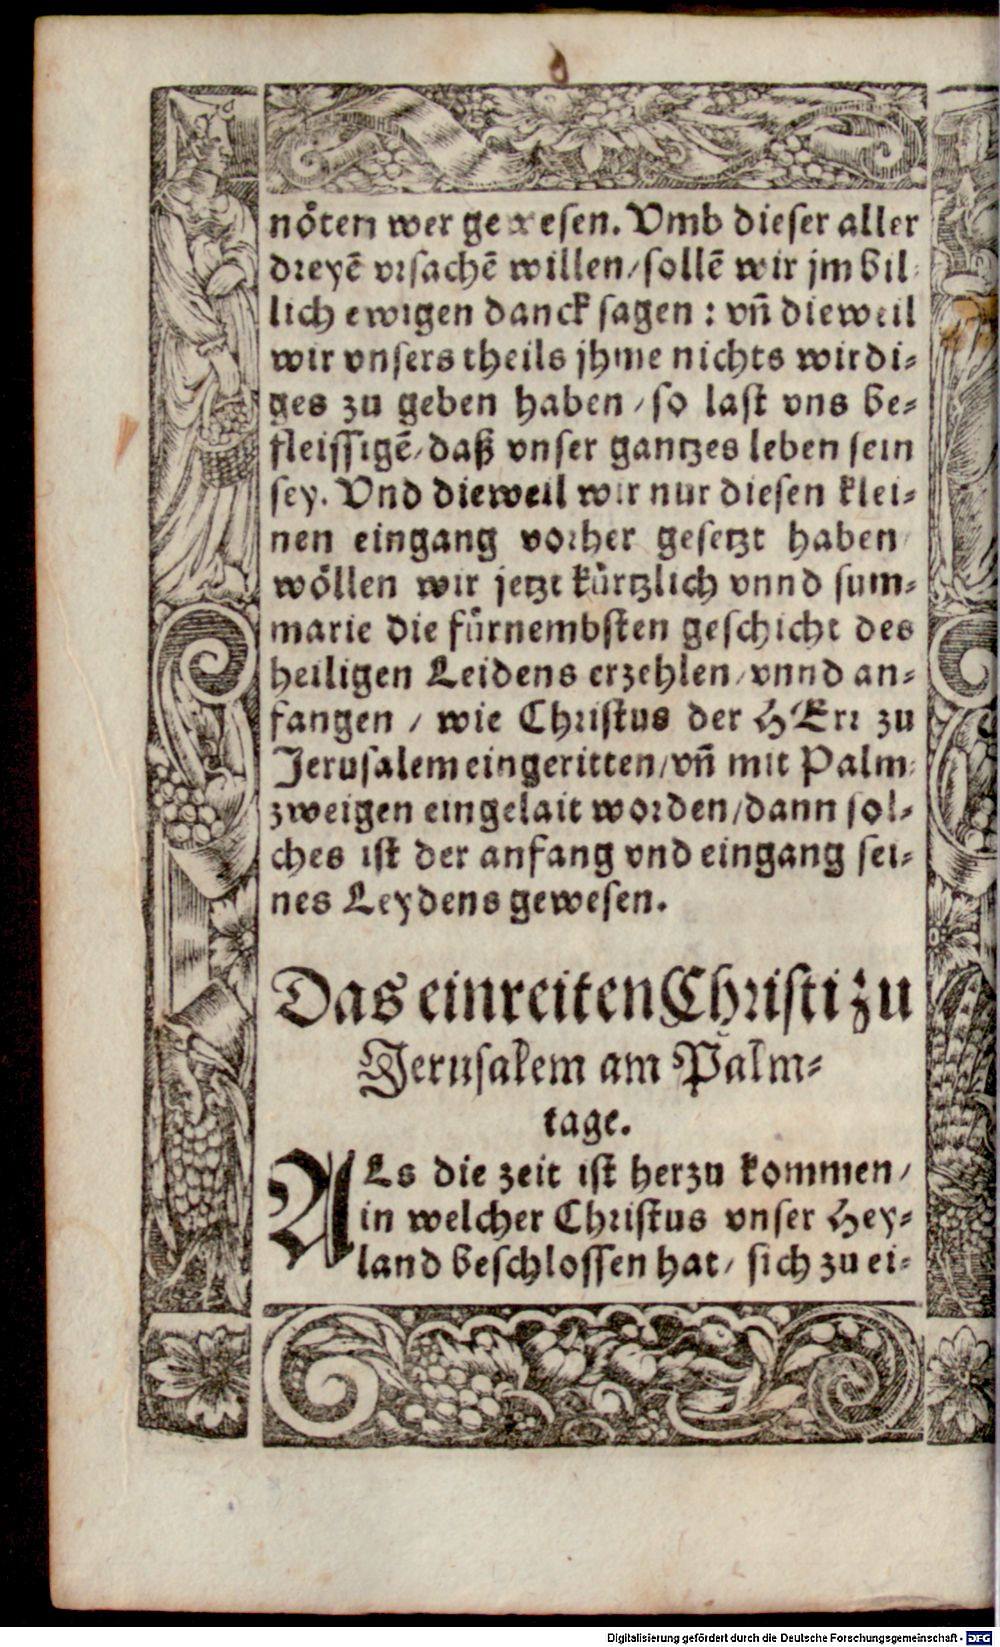 nöten wer gewesen. Vmb dieser aller
dreyē vrsachē willen/sollē wir jm bil-
lich ewigen danck sagen: vñ dieweil
wir vnsers theils jhme nichts wirdi-
ges zu geben haben/so last vns be-
fleissigē/daß vnser gantzes leben sein
sey. Vnd dieweil wir nur diesen klei-
nen eingang vorher gesetzt haben/
wöllen wir jetzt kürtzlich vnnd sum-
marie die fürnembsten geschicht des
heiligen Leidens erzehlen/vnnd an-
fangen/wie Christus der HErr zu
Jerusalem eingeritten/vñ mit Palm-
zweigen eingelait worden/dann sol-
ches ist der anfang vnd eingang sei-
nes Leydens gewesen.
Das einreiten Christi zu
Jerusalem am Palm-
tage.
ALs die zeit ist herzu kommen/
in welcher Christus vnser Hey-
land beschlossen hat/sich zu ei-
Digitalisierung gefördert durch die Deutsche Forschungsgemeinschaft - DFG